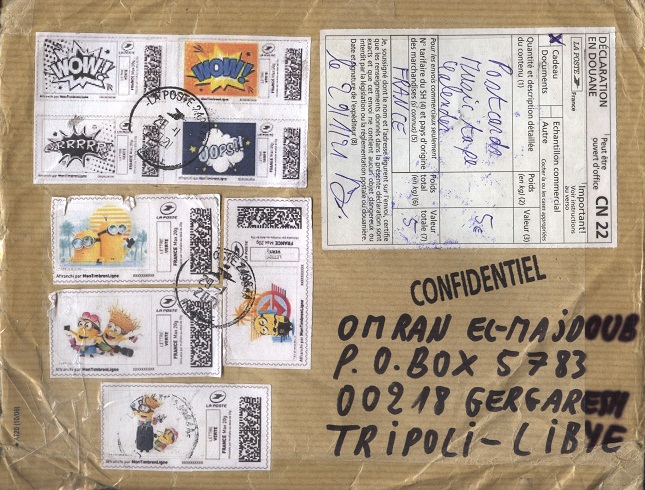 WOW!
WOW!
LA POSTE
OOPS!
LA POSTE
FRANCE
LETTRE VERTE
Affranchi par MonTimbrenLigne
LA POSTE
FRANCE
LETTRE VERTE
Affranchi par MonTimbrenLigne
LA POSTE
FRANCE
LETTRE VERTE
LA POSTE
FRANCE
LETTRE VERTE
Affranchi par MonTimbrenLigne
DÉCLARATION
EN DOUANE
Peut être
ouvert d'office
CN 22
LA POSTE France
Important!
Voir instructions
au verso
X Cadeau
Echantillon commercial
Documents
Autre
Cocher la ou les cases appropriées
Quantité et description détaillée
du contenu (1)
Poids
(en kg) (2)
Valeur (3)
Postcards
Magic tape
Calendar
5€
Pour les envois commerciaux seulement
N° tarifaire du SH (4) et pays d'origine
des marchandises (si connus) (5)
Poids
total
(en kg) (6)
Valeur
totale (7)
FRANCE
5
Je, soussigné dont le nom et l'adresse figurent sur l'envoi, certifie
que les renseignements donnés dans la présente déclaration sont
exacts et que cet envoi ne contient aucun objet dangereux ou
interdit par la législation ou la réglementation postale ou douanière.
Date et signature de l'expéditeur (8)
CONFIDENTIEL
OMRAN EL-MAJDOUB
P.O.BOX 5783
00218 GERGARESH
TRIPOLI-LIBYE